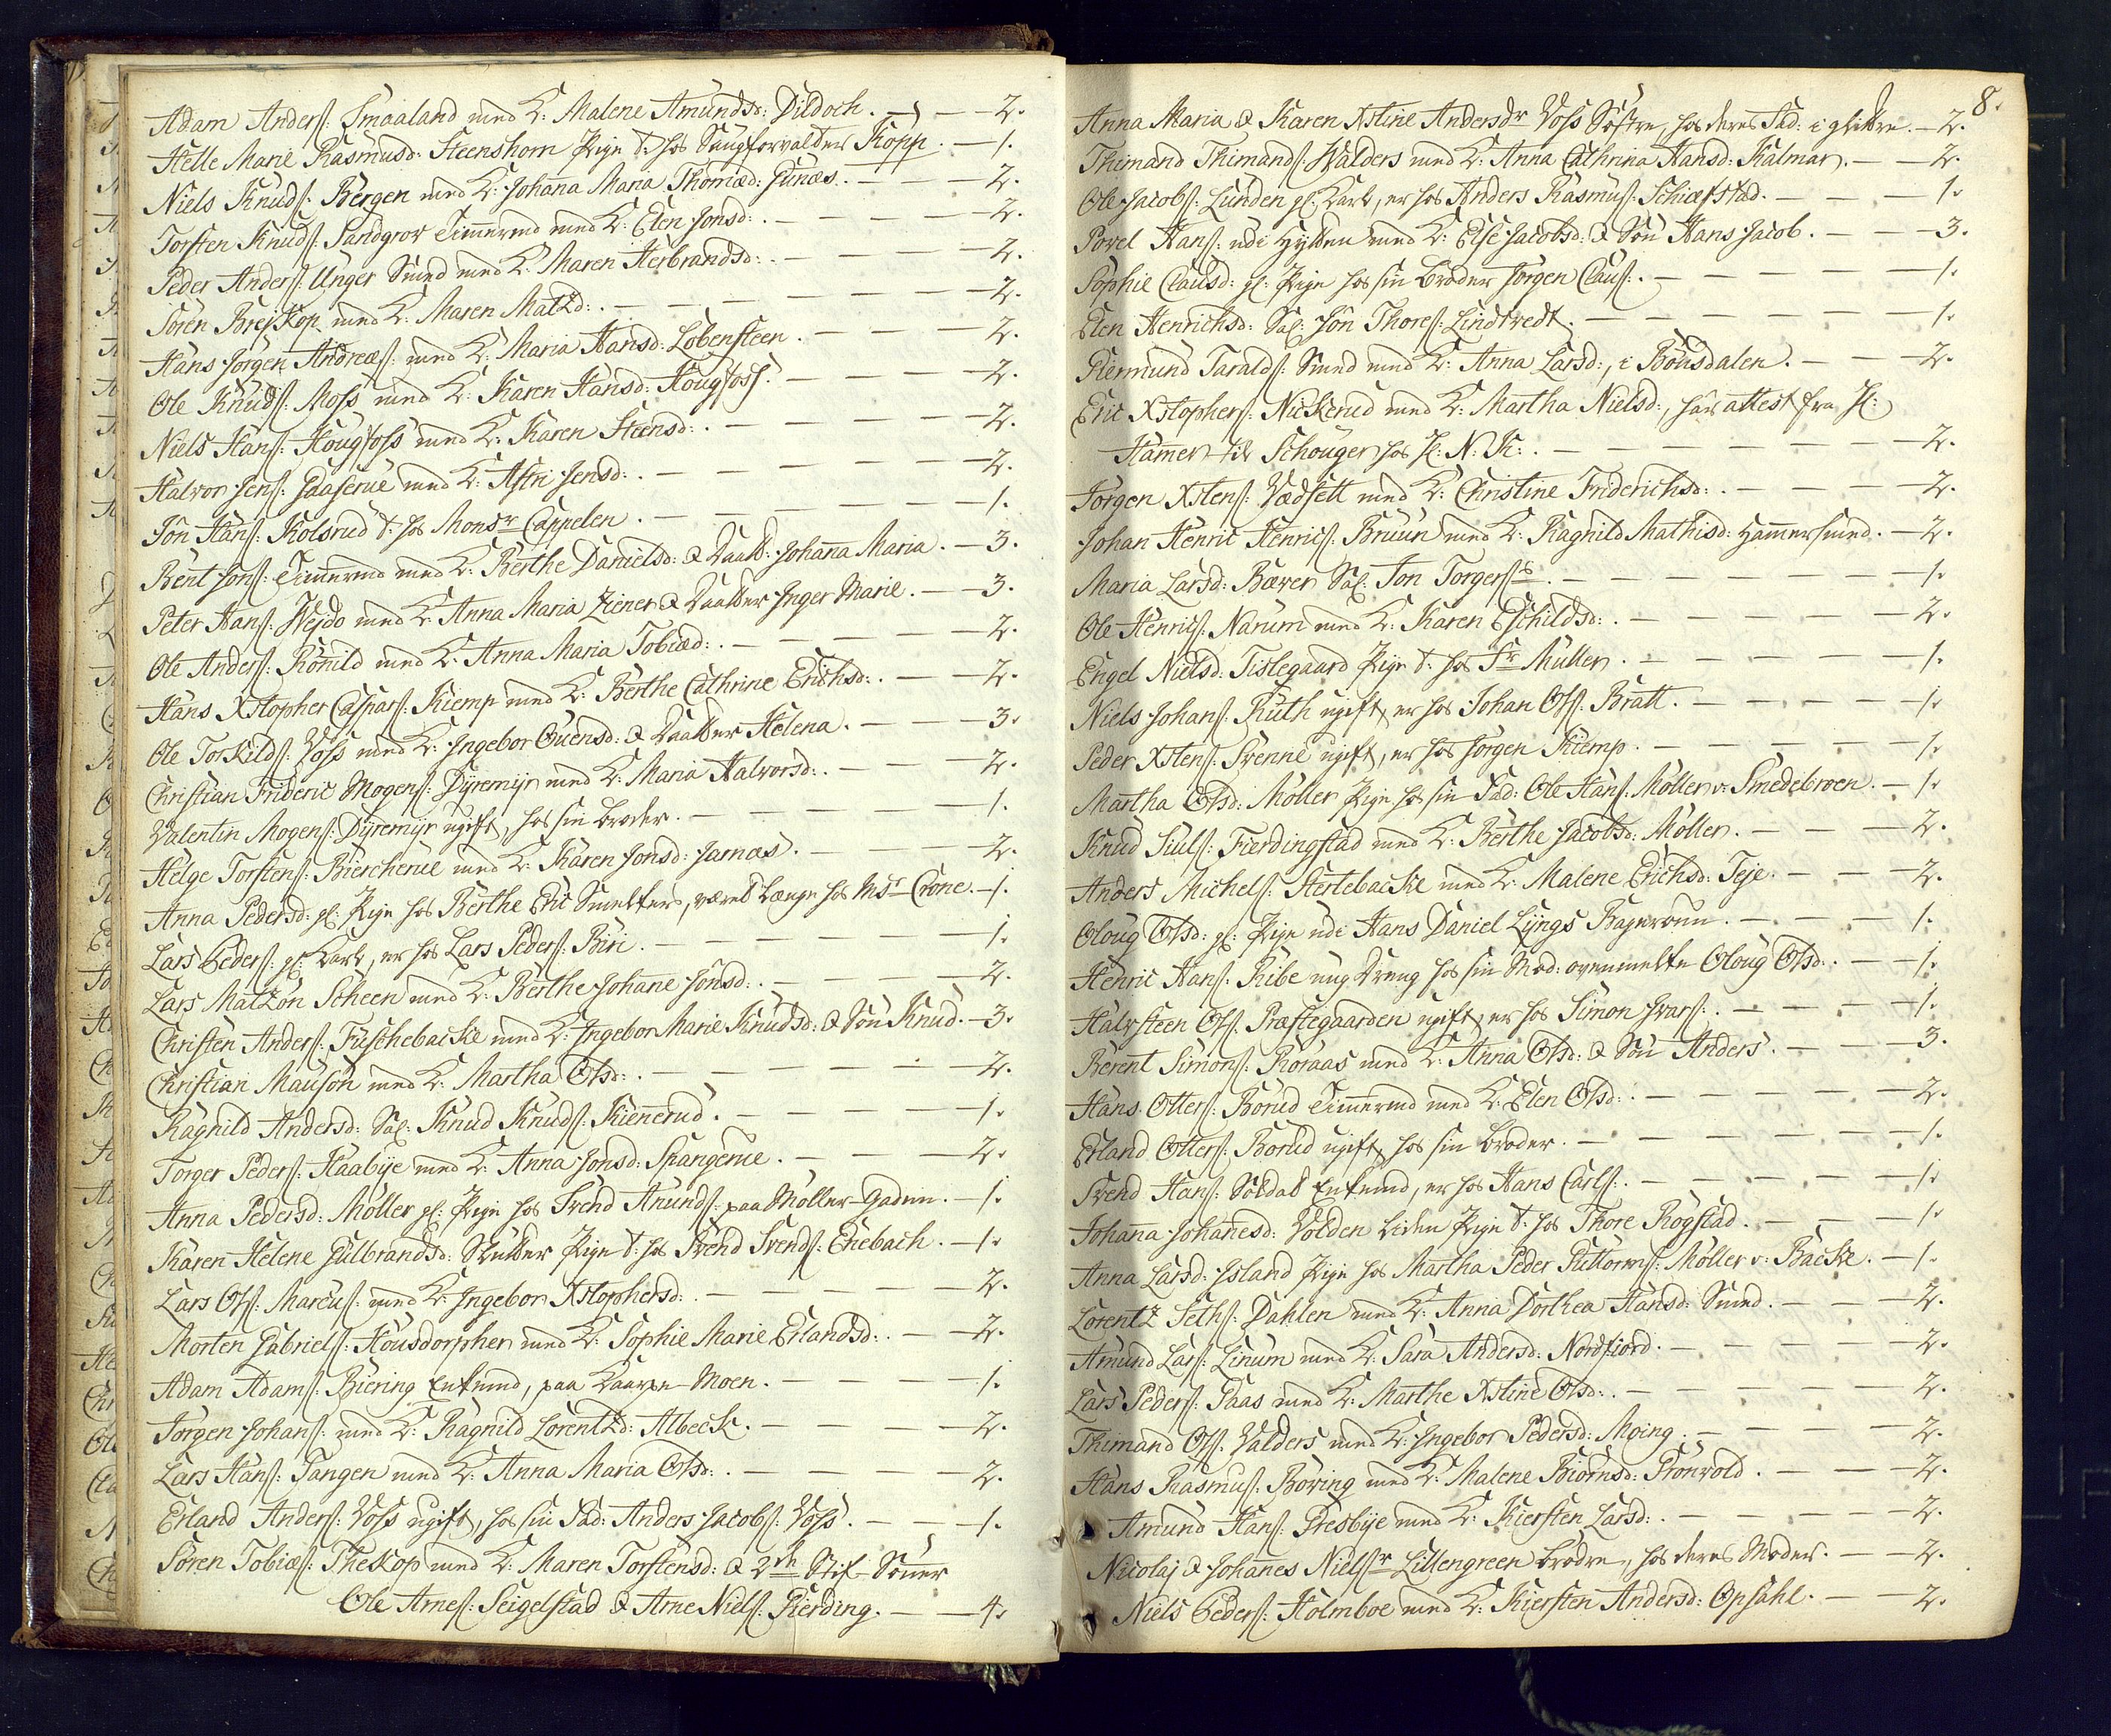 Adam Anders: Smaaland med K: Malene Amundsd: Dildoch. — — 2.
Helle Marie Rasmusd: Steenshorn Pige t: hos Saugforvalter Kopp. — 1.
Niels Knuds: Bergen med K: Johanna Maria Thomæd: Gunæs. — — 2.
Torsten Knuds: Sandgrov Timmermd med K: Elen Jonsd: — — 2.
Peder Anders: Unger Smed med K: Maren Herbrandsd: — — 2.
Sören Brejskop med K: Maren Matzd: — — 2.
Hans Jörgen Andreæs: med K: Maria Hansd: Lobensteen. — — 2.
Ole Knuds: Moss med K: Karen Hansd: Hougfoss. — — 2.
Niels Hans: Hougfoss med K: Karen Steensd: — — 2.
Halvor Jens: Gaaserue med K: Astri Jensd: — — 2.
Jön Hans: Kolsrud t: hos Monsr Cappelen. — — 1.
Bent Jons: Timmermd med K: Berthe Danielsd: & Daatt: Johanna Maria. — 3.
Peter Hans: Wejdo med K: Anna Maria Ziener & Daatter Inger Marie. — 3.
Ole Anders: Römild med K: Anna Maria Tobiæd: — — 2.
Hans Xstopher Caspars: Kiemp med K: Berthe Cathrine Erichsd: — — 2.
Ole Torkilds: Voss med K: Ingebor Guensd: & Daatter Helena. — — 3.
Christian Frideric Mogens: Dyremyr med K: Maria Halvorsd: — — 2.
Valentin Mogens: Dyremyr ugift, hos sin broder. — — 1.
Helge Torstens: Bierckerue med K: Karen Jonsd: Jarnæs. — — 2.
Anna Pedersd: gl: Pige hos Berthe Eric Smelters, været længe hos Msr Crone. — 1.
Lars Peders: gl: Karl, er hos Lars Peders: Biri. — — 1.
Lars Matzön Scheen med K: Berthe Johane Jonsd: — — 2.
Christen Anders: Fuschebacke med K: Ingebor Marie Knudsd: & Sön Knud. — 3.
Christian Mauson med K: Martha Olsd: — — 2.
Ragnild Andersd: Sal: Knud Knuds: Kiennerud. — — 1.
Torger Peders: Haabye med K: Anna Jonsd: Spangerue. — — 2.
Anna Pedersd: Möller gl: Pige hos Svend Amunds: paa Möller-Gaden. — 1.
Karen Helene Gulbrandsd: Skutter Pige t: hos Svend Svends: Enebach. — 1.
Lars Ols: Marcus: med K: Ingebor Xstophersd: — — 2.
Morten Gabriels: Housdorpher med K: Sophie Marie Erlandsd: — — 2.
Adam Adams: Biering Enkemd, paa Kaarpe-Moen. — — 1.
Jörgen Johans: med K: Ragnild Lorentzd: Albeck. — — 2.
Lars Hans: Tangen med K: Anna Maria Olsd: — — 2.
Erland Anders: Voss ugift, hos sin Fad: Anders Jacobs: Voss. — — 1.
Sören Tobiæs: Theskop med K: Maren Torstensd: & 2de Stif-Sönner
Ole Arnes: Seigelstad & Arne Niels: Fierding. — — 4.
8.
Anna Maria & Karen Xstine Andersdr Voss Söstre, hos deres Fad: i glittre. — 2.
Thimand Thimands: Walders med K: Anna Cathrina Hansd: Kalmar. — — 2.
Ole Jacobs: Lunden gl: Karl, er hos Anders Rasmus: Schiæfstad. — — 1.
Povel Hans: udi Hytten med K: Else Jacobsd: & Sön Hans Jacob. — — 3.
Sophie Clausd: gl: Pige hos sin broder Jörgen Claus: — — 1.
Elen Henrichsd: Sal: Jön Thores: Lindtvedt. — — 1.
Germund Taralds: Smed med K: Anna Larsd:, i Bönsdalen. — — 2.
Eric Xstophers: Nickerud med K: Martha Nielsd:, har attest fra H:
Hamer til Schouger hos H: N: K: — — 2.
Jörgen Xstens: Vedsett med K: Christine Friderichsd: — — 2.
Johan Henric Henrics: Bruun med K: Ragnild Mathisd: Hammersmed. — 2.
Maria Larsd: Bærer Sal: Jon Torgers: — — 1.
Ole Henrics: Narum med K: Karen Eschildsd: — — 2.
Engel Nielsd: Tislegaard Pige t: hos Fr Müller. — — 1.
Niels Johans: Ruth ugift, er hos Johan Ols: Bratt. — — 1.
Peder Xstens: Svenne ugift, er hos Jörgen Kiemp. — — 1.
Martha Olsd: Möller Pige hos sin Fad: Ole Hans: Möller v: Smedebroen. — 1.
Knud Siuls: Fierdingstad med K: Berthe Jacobsd: Möller. — — 2.
Anders Michels: Stertebacke med K: Malene Erichsd: Teje. — — 2.
Oloug Olsd: gl: Pige udi Hans Daniel Lyngs Bageroom. — — 1.
Henric Hans: Ribe ung Dreng hos sin Mod: ovenmelte Oloug Olsd: — — 1.
Halvsteen Ols: Præstegaarden ugift, er hos Simon Ivars: — — 1.
Berent Simons: Roraas med K: Anna Olsd: & Sön Anders. — — 3.
Hans Otters: Borud Timmermd med K: Elen Olsd: — — 2.
Erland Otters: Borud ugift, hos sin broder. — — 1.
Svend Hans: Soldat Enkemd, er hos Hans Carls: — — 1.
Johanna Johanesd: Volden liden Pige t: hos Thore Rogstad. — — 1.
Anna Larsd: Island Pige hos Martha Peder Guttorms: Möller v: Backe. — 1.
Lorentz Seths: Dahlen med K: Anna Dorthea Hansd: Smed. — — 2.
Amund Lars: Linum med K: Sara Andersd: Nordfiord. — — 2.
Lars Peders: Saas med K: Marthe Xstine Olsd: — — 2.
Thimand Ols: Valders med K: Ingebor Pedersd: Moing. — — 2.
Hans Rasmus: Böving med K: Malene Biörnsd: Grönvold. — — 2.
Amund Hans: Presbye med K: Kiersten Larsd: — — 2.
Nicolaj & Johannes Nielsr Lillengreen brödre, hos deres Moder. — — 2.
Niels Peders: Holmboe med K: Kiersten Andersd: Opsahl. — — 2.